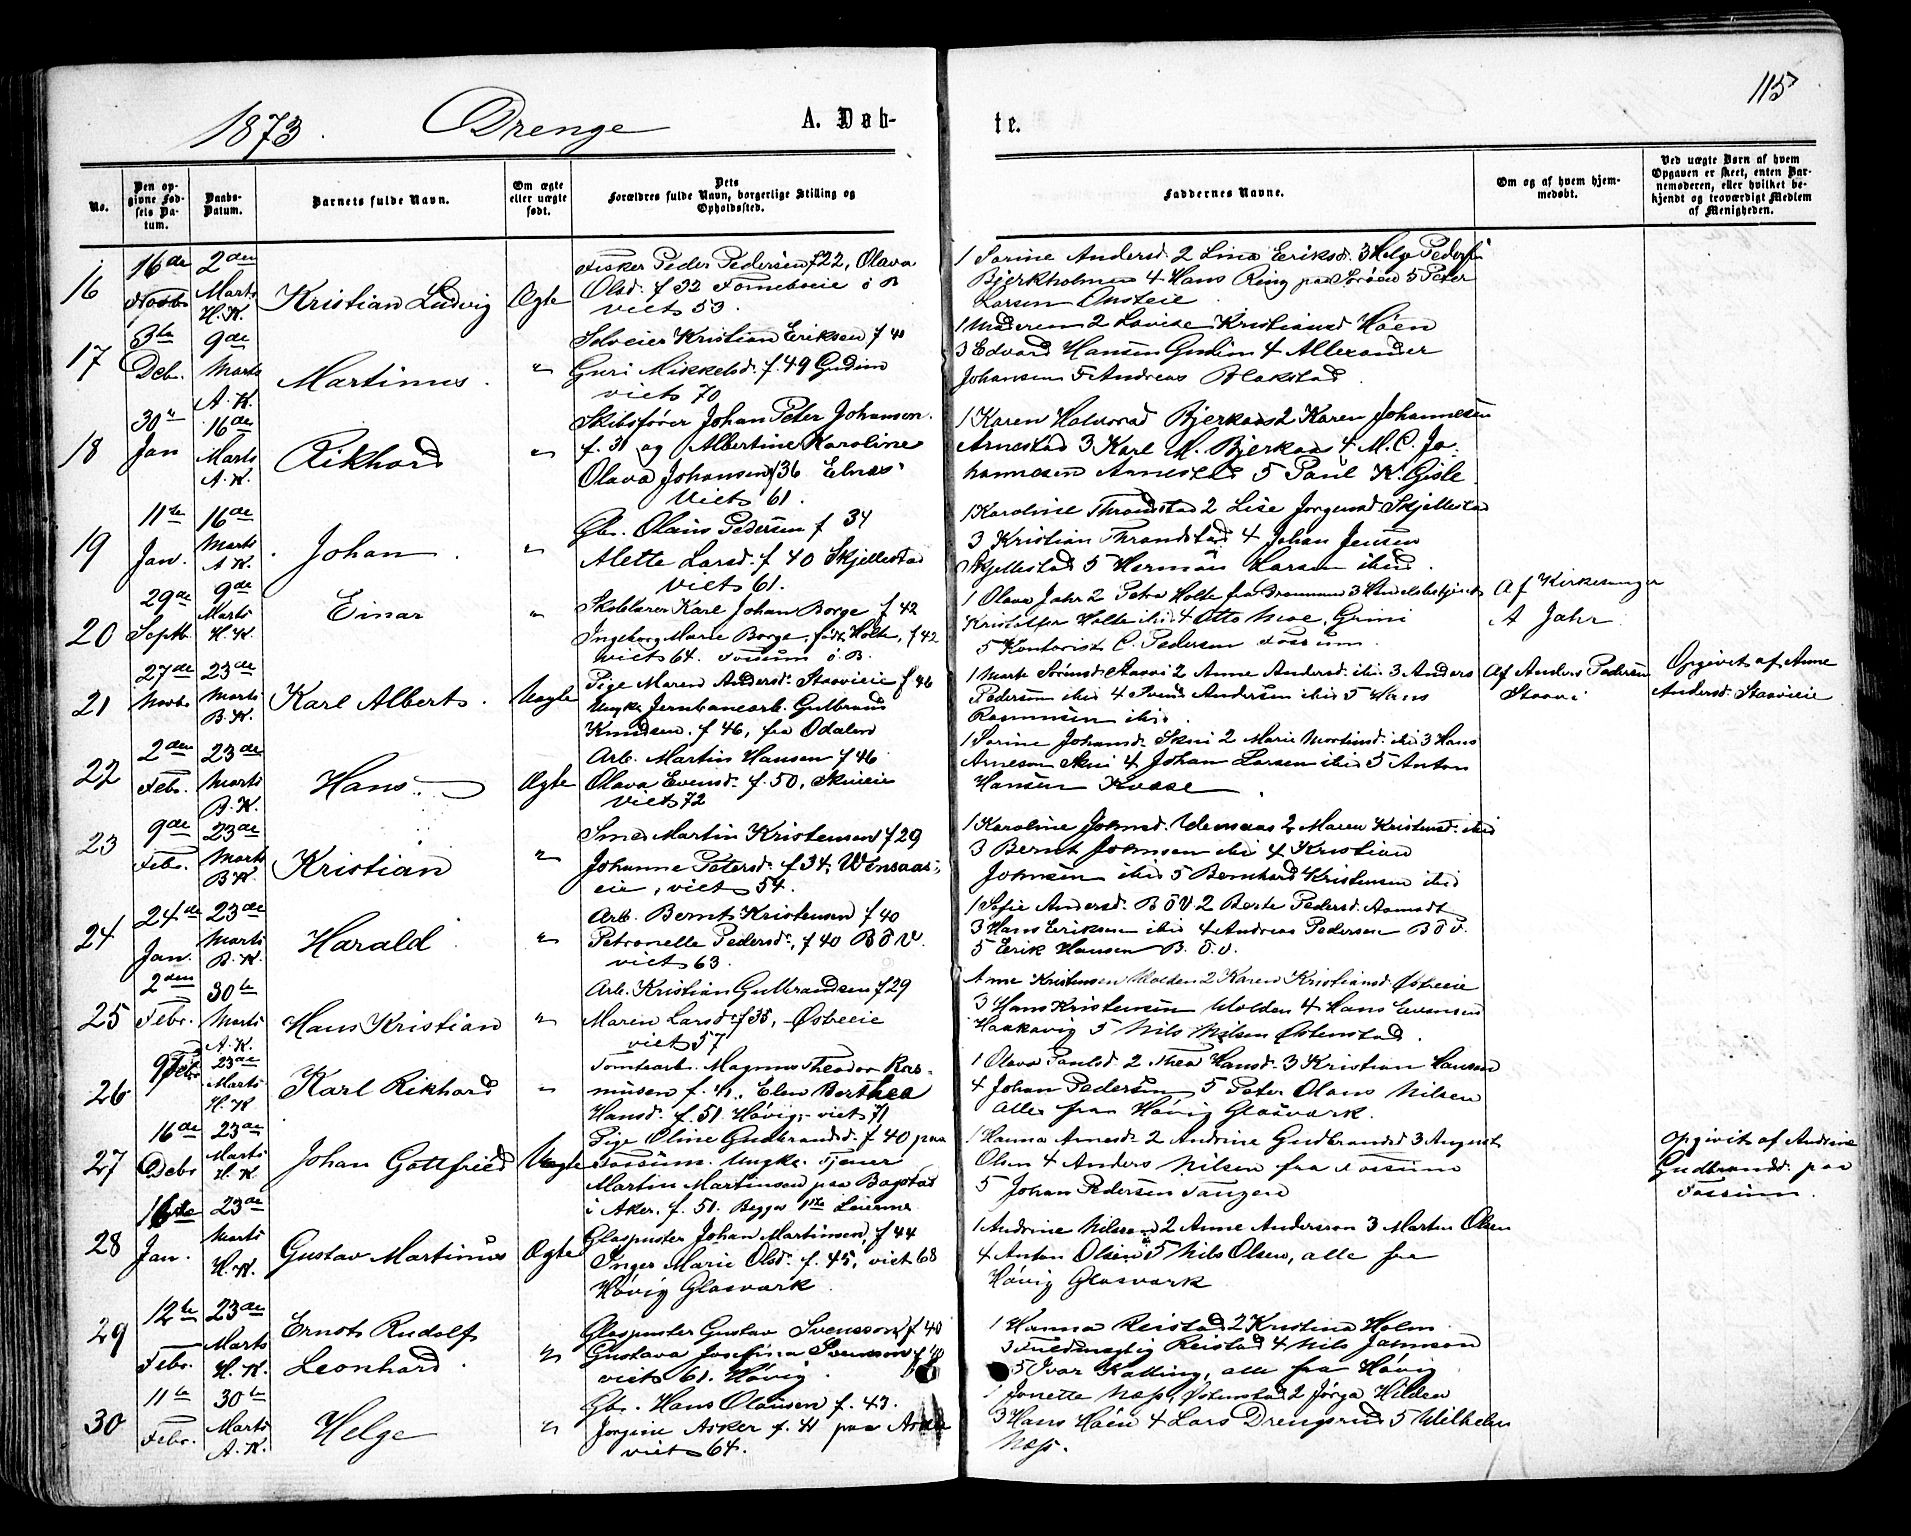 115
1873. Drenge A. Døb-
te.
No.
Den op-
givne Fød-
sels Da-
tum.
Daabs-
Datum.
Barnets fulde Navn.
Om ægte
eller uægte
født.
Dets
Forældres fulde Navn, borgerlige Stilling og
Opholdssted.
Faddernes Navne.
Om og af hvem hjem-
medøbt.
Ved uægte Børn af hvem
Opgaven er skeet, enten Bar-
nemoderen, eller hvilket be-
kjendt og troværdigt Medlem
af Menigheden.
16
16de
Novbr
2den
Marts
H. K.
Kristian Ludvig
Ægte
Fisker Peder Pedersen f 22, Olava
Olsd. f 32
viet 53.
1 Sorine Andersd 2 Lina Eriksd. 3 Helge
Bjerkholmen 4 Hans Ring paa 5 Peter
Larsen
17
3te
Debr.
9de
Marts
A. K.
Martinus.
"
Selveier Kristian Eriksen f 40
Guri Mikkelsd. f. 49 Gudim
viet 70
1 Moderen 2 Lovise Kristiansd Høen
3 Edvard Hansen Gudim 4 Allexander
Johansen 5 Andreas Blakstad.
18
30te
Jan
16de
Marts
A. K.
Rikhard
"
Skibsfører Johan Peter Johansen.
f. 31 og Albertine Karoline
Olava Johansen f 36 Elnæs
Viet 61.
1 Karen Halvorsd Bjerkaas 2 Karen Johannesen
Arnestad 3 Karl M. Bjerkaas 4 M. C. Jo-
hannesen Arnestad 5 Paul K. Gisle.
19
11te
Jan.
16de
Marts
A K.
Johan.
"
Gbr. Olaus Pedersen f 34
Alette Larsd. f 40 Skjellestad
Viet 61.
1 Karoline Thrandstad 2 Lise Jørgensd Skjellestad
3 Kristian Thrandstad 4 Johan Jensen
Skjellestad 5 Herman Larsen ibid.
20
29de
Septb.
9de
Marts
H. K.
Einar
"
Skolelærer Karl Johan Borge f 42
Ingeborg Marie Borge, født Holte, f 42
viet 64. Fossum ø. B.
1 Olava Jahr 2 Petra Holte fra Drammen 3
Kristoffer Holte ibid 4 Otto Moe, Grini
5 Kontorist C. Pedersen Fossum.
Af Kirkesanger
A Jahr
21
27de
Novbr.
23de
Marts
B. K.
Karl Albert.
Uægte
Pige Maren Andersd. Staavieie f 46
Ungk. Jernbanearb. Gulbrand
Knudsen. f 46, fra Odalen
1 Marte Sørensd. Staavi 2 Anne Andersd. ibi. 3 Anders
Pedersen ibid 4 Andersen ibid 5 Hans
Rasmusen ibid.
Af Anders Pedersen
Staavi
Opgivet af Anne
Andersd. Staavieie
22
2den
Febr.
23de
Marts
B. K.
Hans.
Ægte
Arb. Martin Hansen f 46
Olava Evensd. f. 50, Skuieie
Viet 72
1 Sorine Johansd. Skui 2 Marie Mortensd. ibid 3 Hans
Arnesen Skui 4 Johan Larsen ibid 5 Anton
Hansen
23
9de
Febr.
23de
Marts
B K.
Kristian
"
Smed Martin Kristensen f 29
Johanne Petersd. f 34, Wensaas-
eie, viet 54.
1 Karoline Johnsd. Wensaas 2 Maren Kristensd. ibid
3 Bernt Johnsen ibi 4 Kristian
Johnsen ibid 5 Bernhard Kristensen ibid
24
24de
Jan.
23de
Marts
B. K.
Harald
"
Arb. Bernt Kristensen f 40
Petronelle Pedersd., f 40 B ø V.
viet 63.
1 Sofie Andersd. B ø V. 2 Berte Pedersd. Aamodt
3 Hans Eriksen ibid 4 Andreas Pedersen B ø V.
5 Erik Hansen B. ø. V.
25
2den
Febr.
30te
Marts
A. K.
Hans Kristian
"
Arb. Kristian Gulbrandsen f 29
Maren Larsd. f 35, Østreeie
viet 57
Anne Kristensen Wolden 2 Karen Kristiansd. Østreeie
3 Hans Kristensen Wolden 4 Hans Evensen
Haakavig 5 Nils Nilsen Østenstad.
26
9 Febr
23de
Marts
H. K.
Karl Rikhard
"
Tomtearb. Magnus Theodor Ras-
musen f. 41, Elen Berthea
Hansd. f. 51. Høvig, viet 71
1 Olava Paulsd. 2 Thea Hansd. 3 Kristian Hansen
4 Johan Pedersen 5 Peter Olaus Nilsen
alle fra Høvig Glasværk.
27
16de
Debr
23de
Marts
H. K.
Johan Gottfried
Uægte
Pige Oline Gudbrandsd. f 40 paa
Fossum. Ungk. Tjener
Martin Martinsen paa Bogstad
i Aker, f. 51. Begges 1ste Leierm.
1 Hanna Arnesd. 2 Andrine Gudbrandsd 3 August
Olsen 4 Anders Nilsen fra Fossum
5 Johan Pedersen Tangen
Opgivet af Andrine
Gudbrandsd. paa
Fossum.
28
16de
Jan.
23de
Marts
H. K.
Gustav Martinus
Ægte
Glaspuster Johan Martinsen, f 44
Inger Marie Olsd. f. 45, viet 68
Høvig Glasværk
1 Andrine Nilsen 2 Anne Anderson 3 Martin Olsen
4 Anton Olsen 5 Nils Olsen, alle fra
Høvig Glasværk
29
12te
Febr.
23de
Marts
H. K.
Ernst Rudolf
Leonhard.
"
Glaspuster Gustav Svensson f 40
Gustava Josefina Svensson f 40
viet 61. Høvig.
1 Hanna Reistad 2 Kristina Holm
3 Fuldmægtig Reistad 4 Nils Johnson
5 Ivar Kolling, alle fra Høvig
30
11te
Febr.
30te
Marts
A. K.
Helge
"
Gbr. Hans Olausen f. 43.
Jørgine Asker f. 41 paa Asker
viet 64.
1 Jonette Næss, Østenstad 2 Jørga Hilden
3 Hans Høen 4 Lars Drengsrud 5 Wilhelm
Næss.